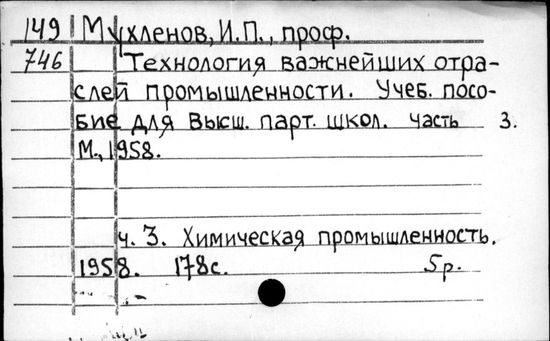 149 Мухленов, И.П., проф.
746 Технология важнейших отра-
слей промышленности. Учеб. посо-
бие для Высш. парт. школ. часть 3.
М., 1958.
ч. 3. Химическая промышленность.
1958. 178с. 5р.